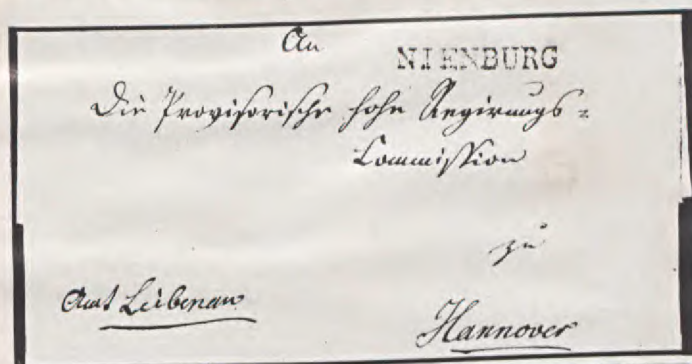 An
NIENBURG
Die Provisorische hohe Regirungs=
Commission
zu
Amt Leibenau
Hannover